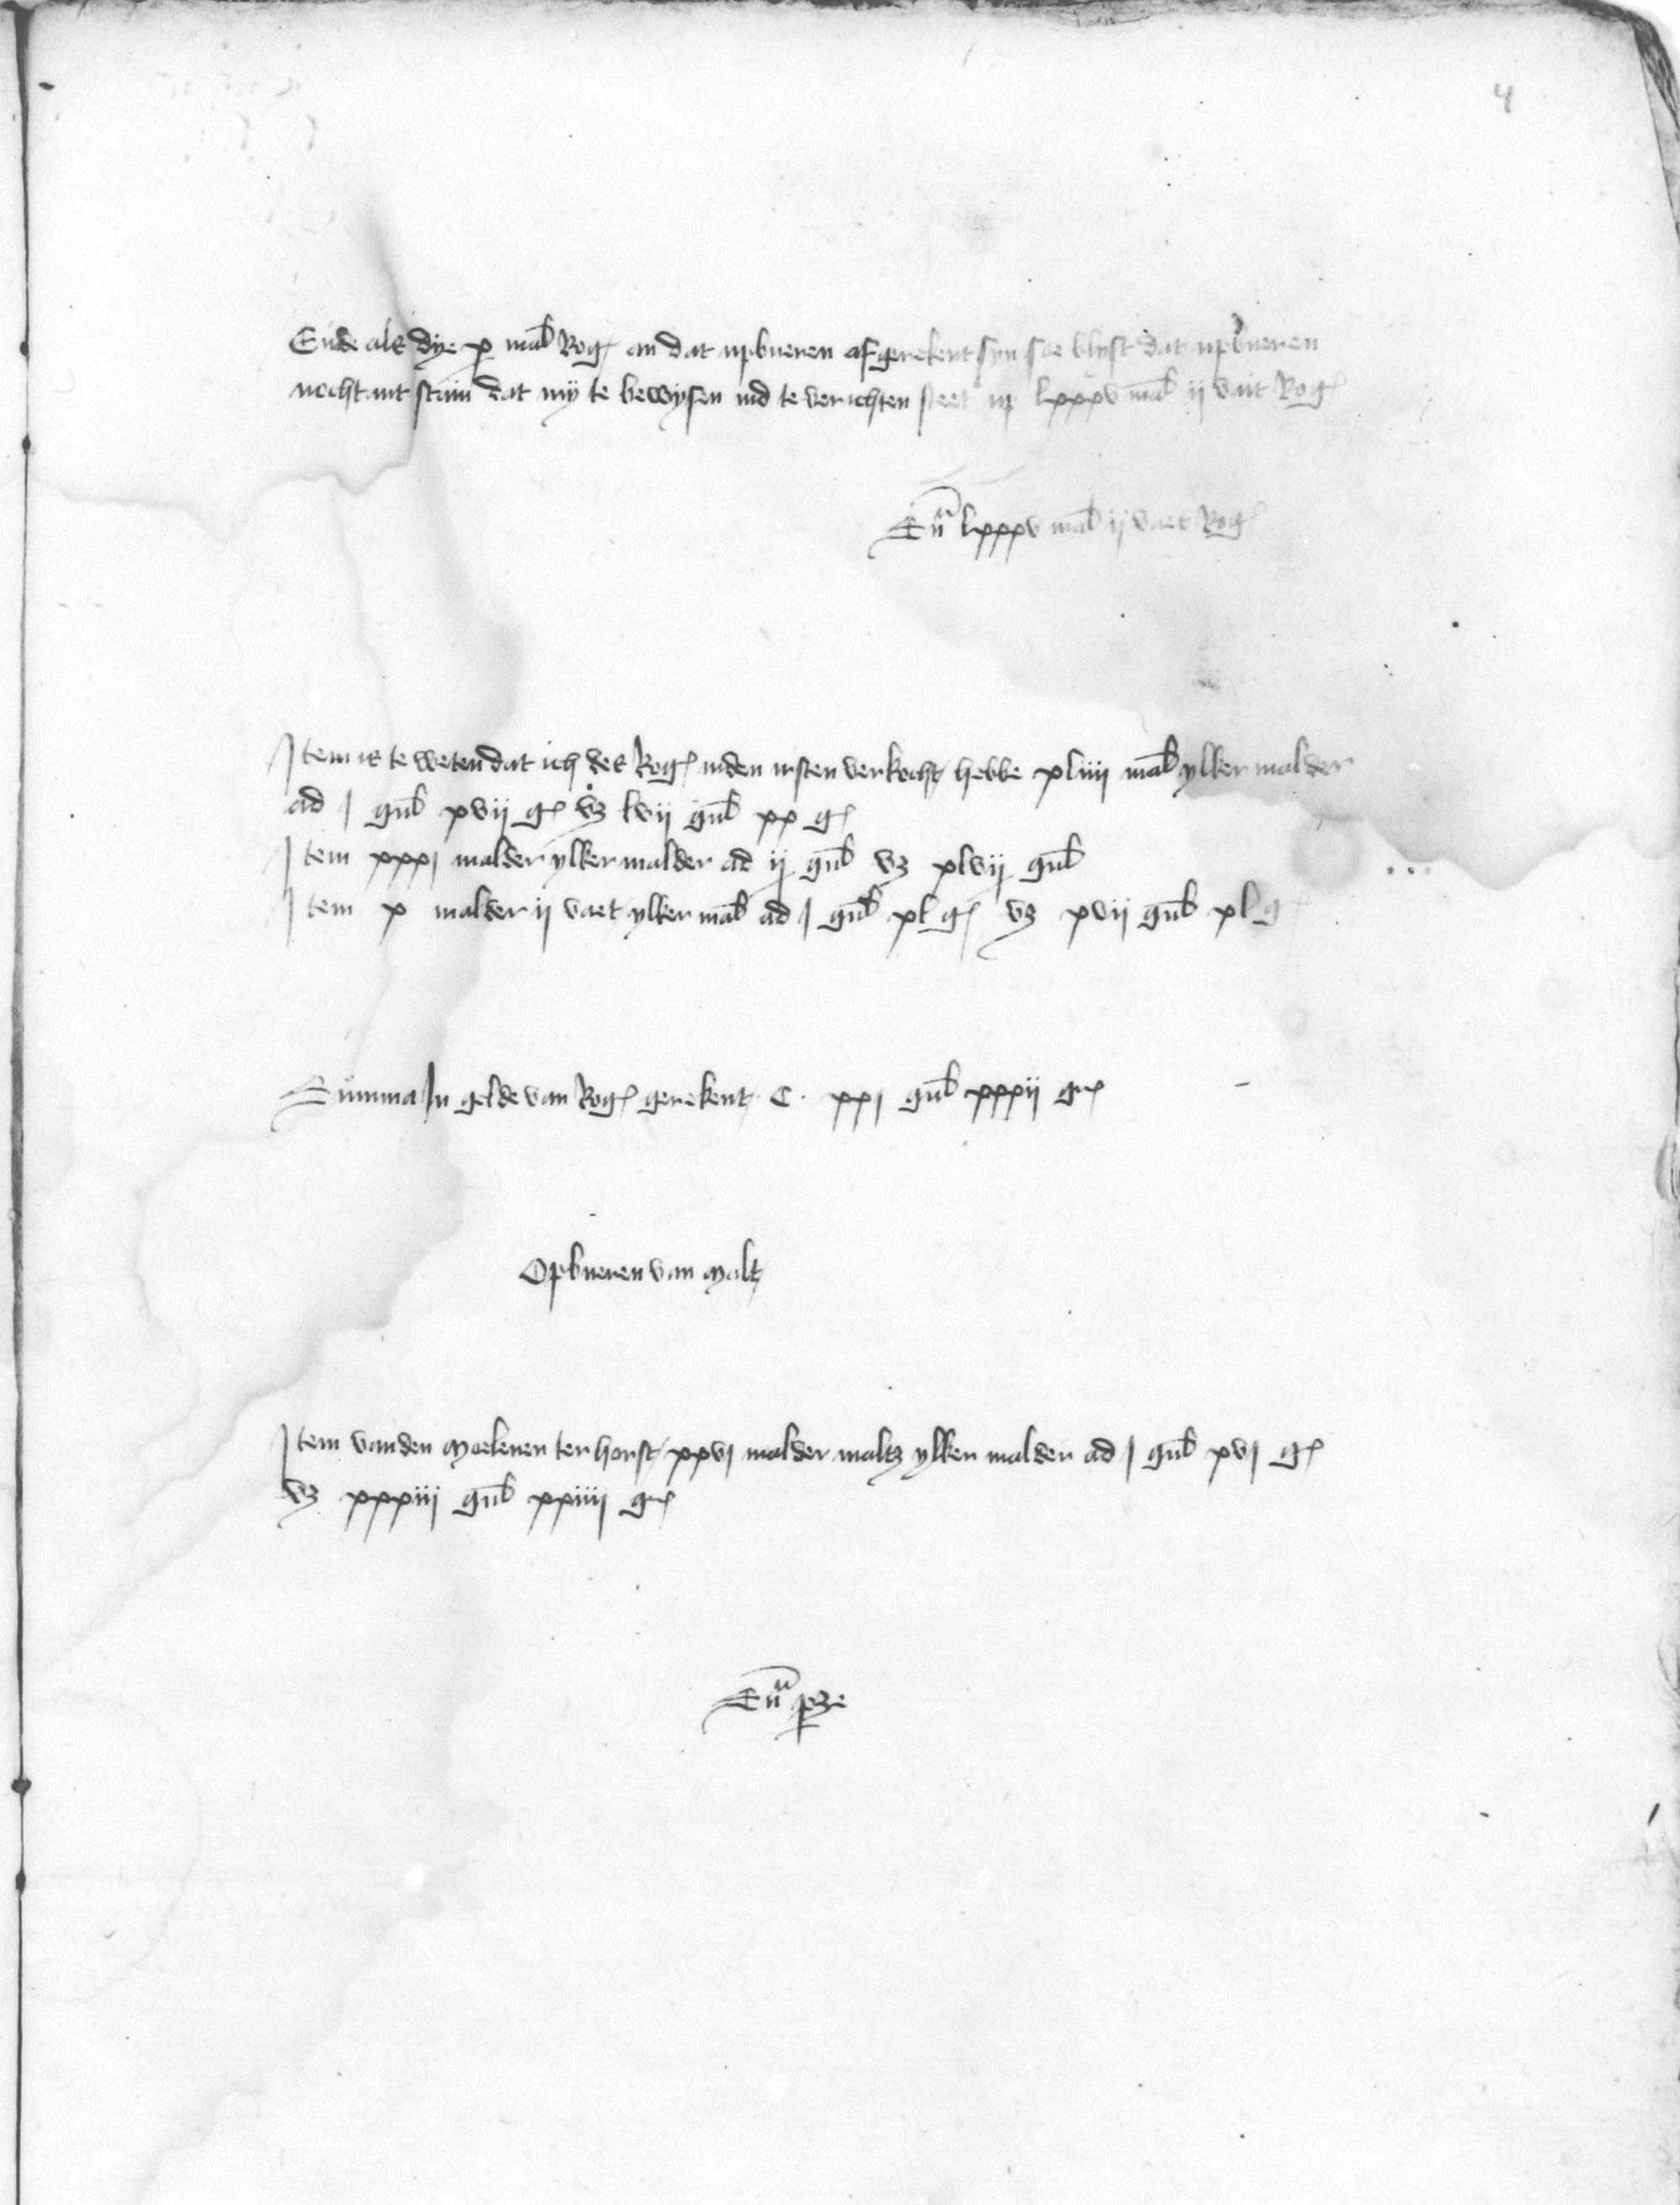 4
Ende als dye x mal Rog an dat upbueren afgerekent syn soe blyft dat upbueren
nocht ant stain dat my te bewysen ind te verichten steet up lxxxv mal ij vait Rog
Sua lxxxv mal ij vaet Rog
Item is te weten dat ich des Rog inden irsten verkocht hebbe xliiij mal ylker malder
ad j gul xvij g vz lvij gul xx g
Item xxxj malder ylker malder ad ij gul vz xlvij gul
Item x malder ij vaet ylker mal ad j gul xl g vz xvij gul xl g
Summa In gelde van Rog gerekent C. xxj gul xxxij gr
Opbueren van Malt
Item vanden Moelenen ter horst xxvj malder maltz ylker malder ad j gul xvj g
vz xxxiij gul xxiiij gr
Sua